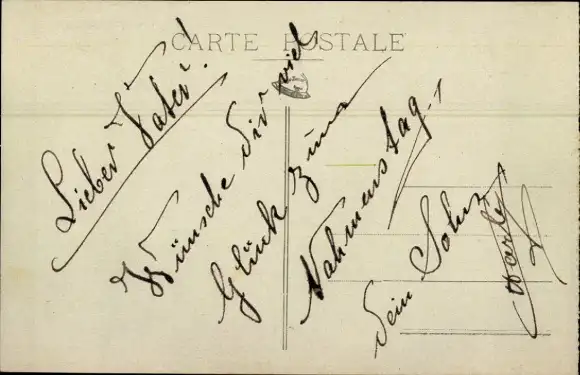 CARTE POSTALE
Lieber Vater!
Wünsche dir viel
Glück zum
Nahmenstag.
Dein Sohn